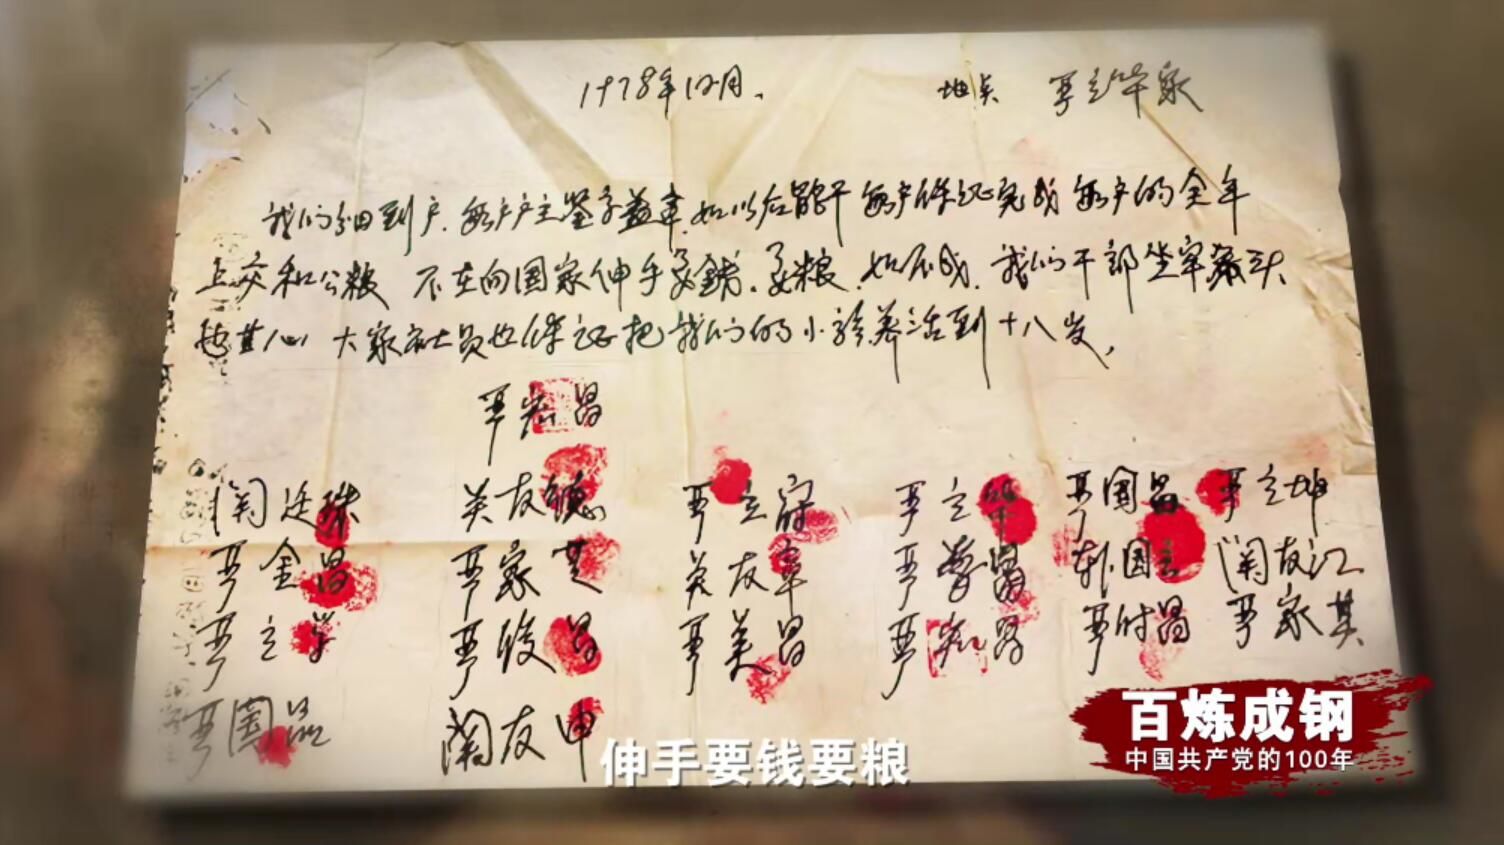 1978年12月. 地点 严立华家
我们分田到户.每户户主鉴字盖章.如以后能干每户保证完成每户的全年
上交和公粮 不在向国家伸手要錢.要粮.如不成.我们干部坐牢杀头
也甘心 大家社员也保证把我们的小孩养活到十八岁.
严宏昌
关廷珠 关友德 严立符 严立华 严国昌 严立坤
严金昌 严家芝 关友章 严学昌 韩国云 关友江
严立学 严俊昌 严美昌 严宏昌 严付昌 严家其
严国品 关友申
伸手要钱要粮
百炼成钢
中国共产党的100年